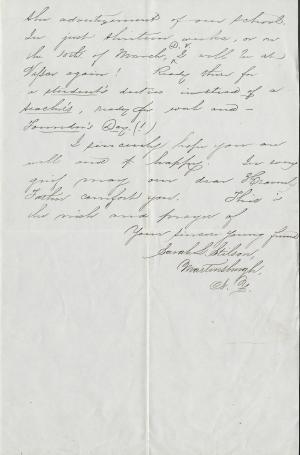 the advertisement of our school.
In just thirteen weeks, or on
the 10th of March, D.V. I will be at
Vassar again! Ready there for
a student's duties instead of a
teacher's, ready for work and –
Founder's Day (!)
I sincerely hope you are
well and happy. In every
grief may our dear Heavenly
Father comfort you. This is
the wish and prayer of
Your sincere young friend
Sarah L. Stilson,
Martinsburgh,
N. Y.